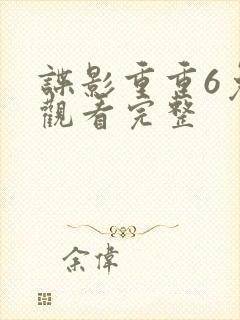 諜影重重6
觀看完整
余偉